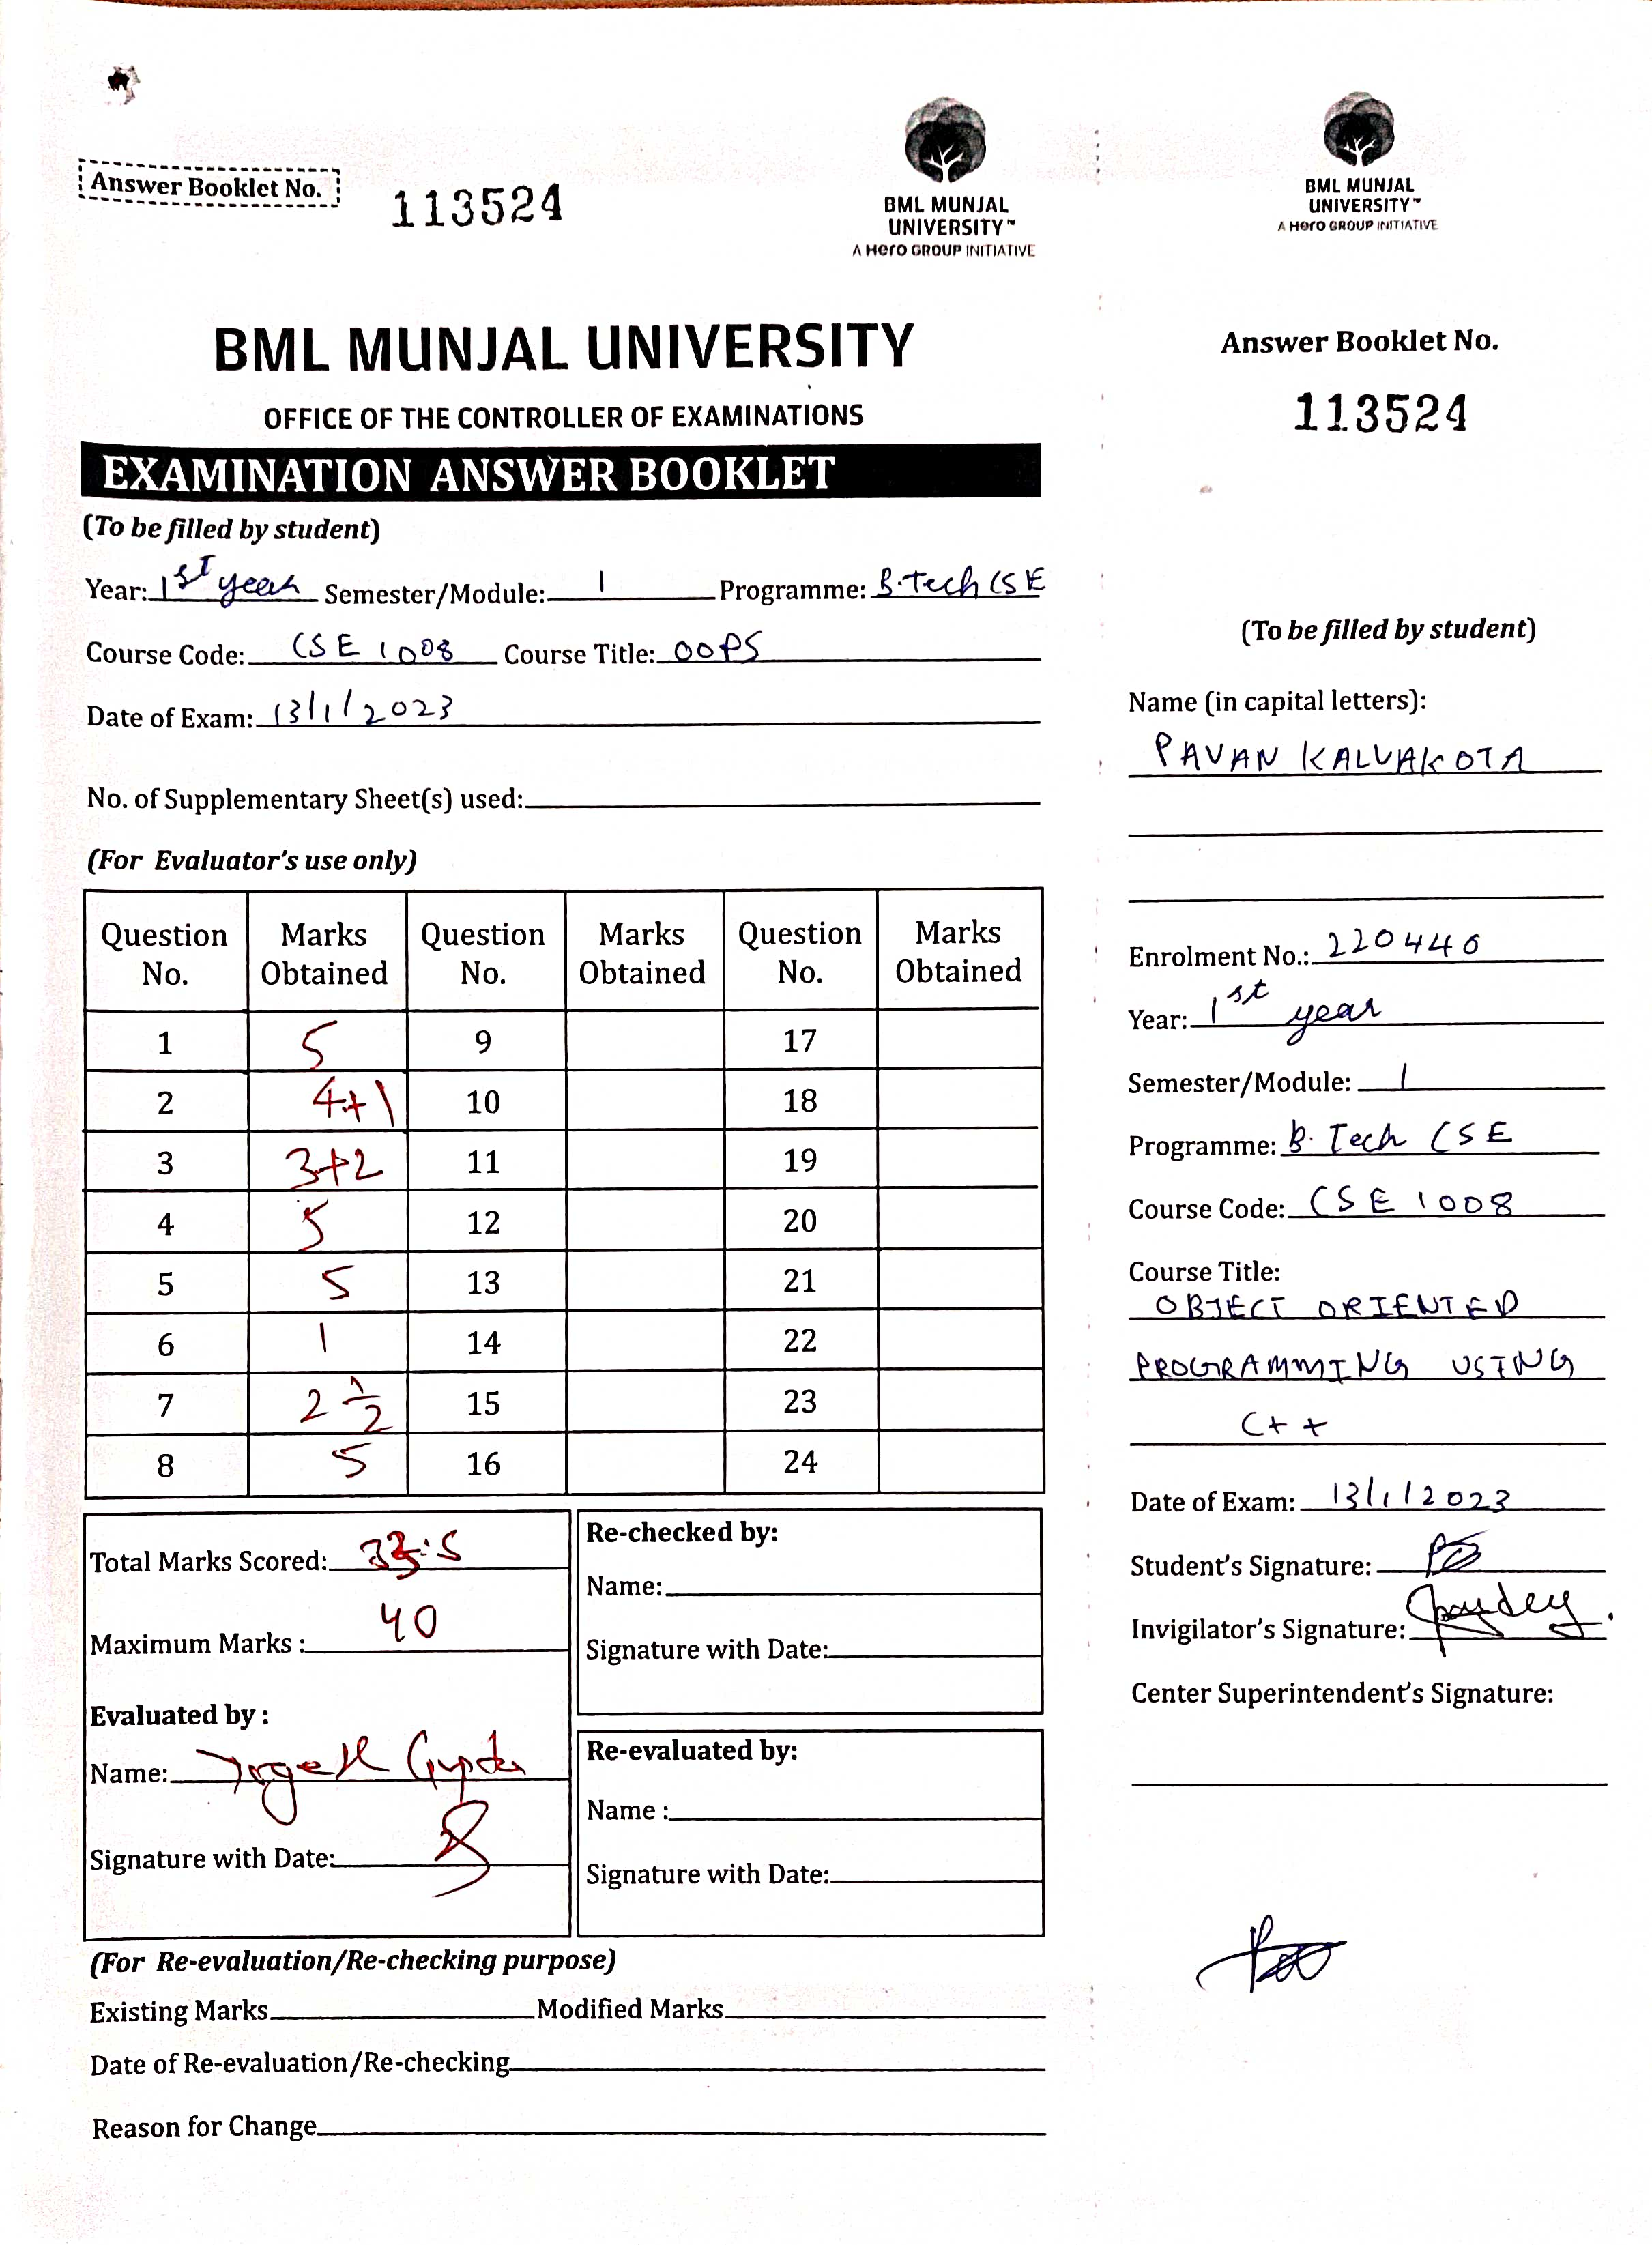 Answer Booklet No. 113524
BML MUNJAL
UNIVERSITY™
A Hero GROUP INITIATIVE
BML MUNJAL UNIVERSITY
OFFICE OF THE CONTROLLER OF EXAMINATIONS
EXAMINATION ANSWER BOOKLET
(To be filled by student)
Year: 1st year Semester/Module: 1 Programme: B.Tech CSE
Course Code: CSE 1008 Course Title: OOPS
Date of Exam: 13/1/2023
No. of Supplementary Sheet(s) used:
(For Evaluator's use only)
Question No. Marks Obtained Question No. Marks Obtained Question No. Marks Obtained
1 5 9 17
2 4+1 10 18
3 3+2 11 19
4 5 12 20
5 5 13 21
6 1 14 22
7 2 1/2 15 23
8 5 16 24
Total Marks Scored: 33.5
Maximum Marks : 40
Evaluated by :
Name: Gupta
Signature with Date:
Re-checked by:
Name:
Signature with Date:
Re-evaluated by:
Name :
Signature with Date:
(For Re-evaluation/Re-checking purpose)
Existing Marks Modified Marks
Date of Re-evaluation/Re-checking
Reason for Change
BML MUNJAL
UNIVERSITY™
A Hero GROUP INITIATIVE
Answer Booklet No.
113524
(To be filled by student)
Name (in capital letters):
PAVAN KALVAKOTA
Enrolment No.: 220446
Year: 1st year
Semester/Module: 1
Programme: B. Tech CSE
Course Code: CSE 1008
Course Title:
OBJECT ORIENTED
PROGRAMMING USING
C++
Date of Exam: 13/1/2023
Student's Signature:
Invigilator's Signature:
Center Superintendent's Signature: